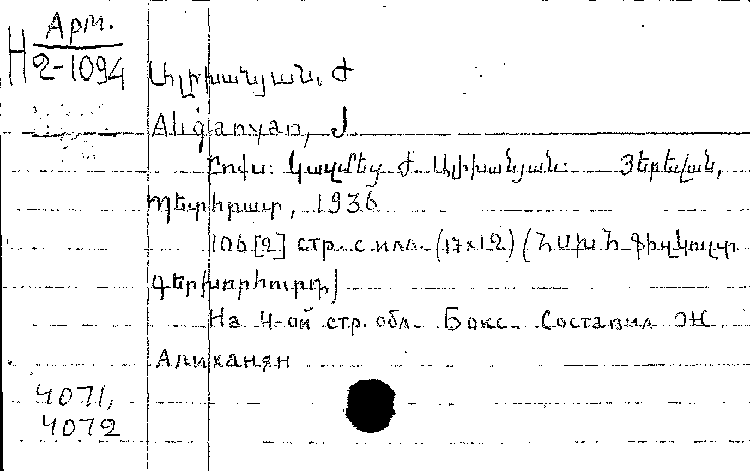 Арм.
Н 2-1094
Ալիխանյան, Ժ
Aliqanyan, J.
Բոքս: Կազմեց Ժ. Ալիխանյան: Յերեվան,
Պետհրատ, 1936
106 [2] стр. с илл. (17x12) (ՀՍԽՀ Ֆիզկուլտ
գերխորհուրդ)
На 4-ой стр. обл. Бокс. Составил Ж
Алиханян
4071,
4072